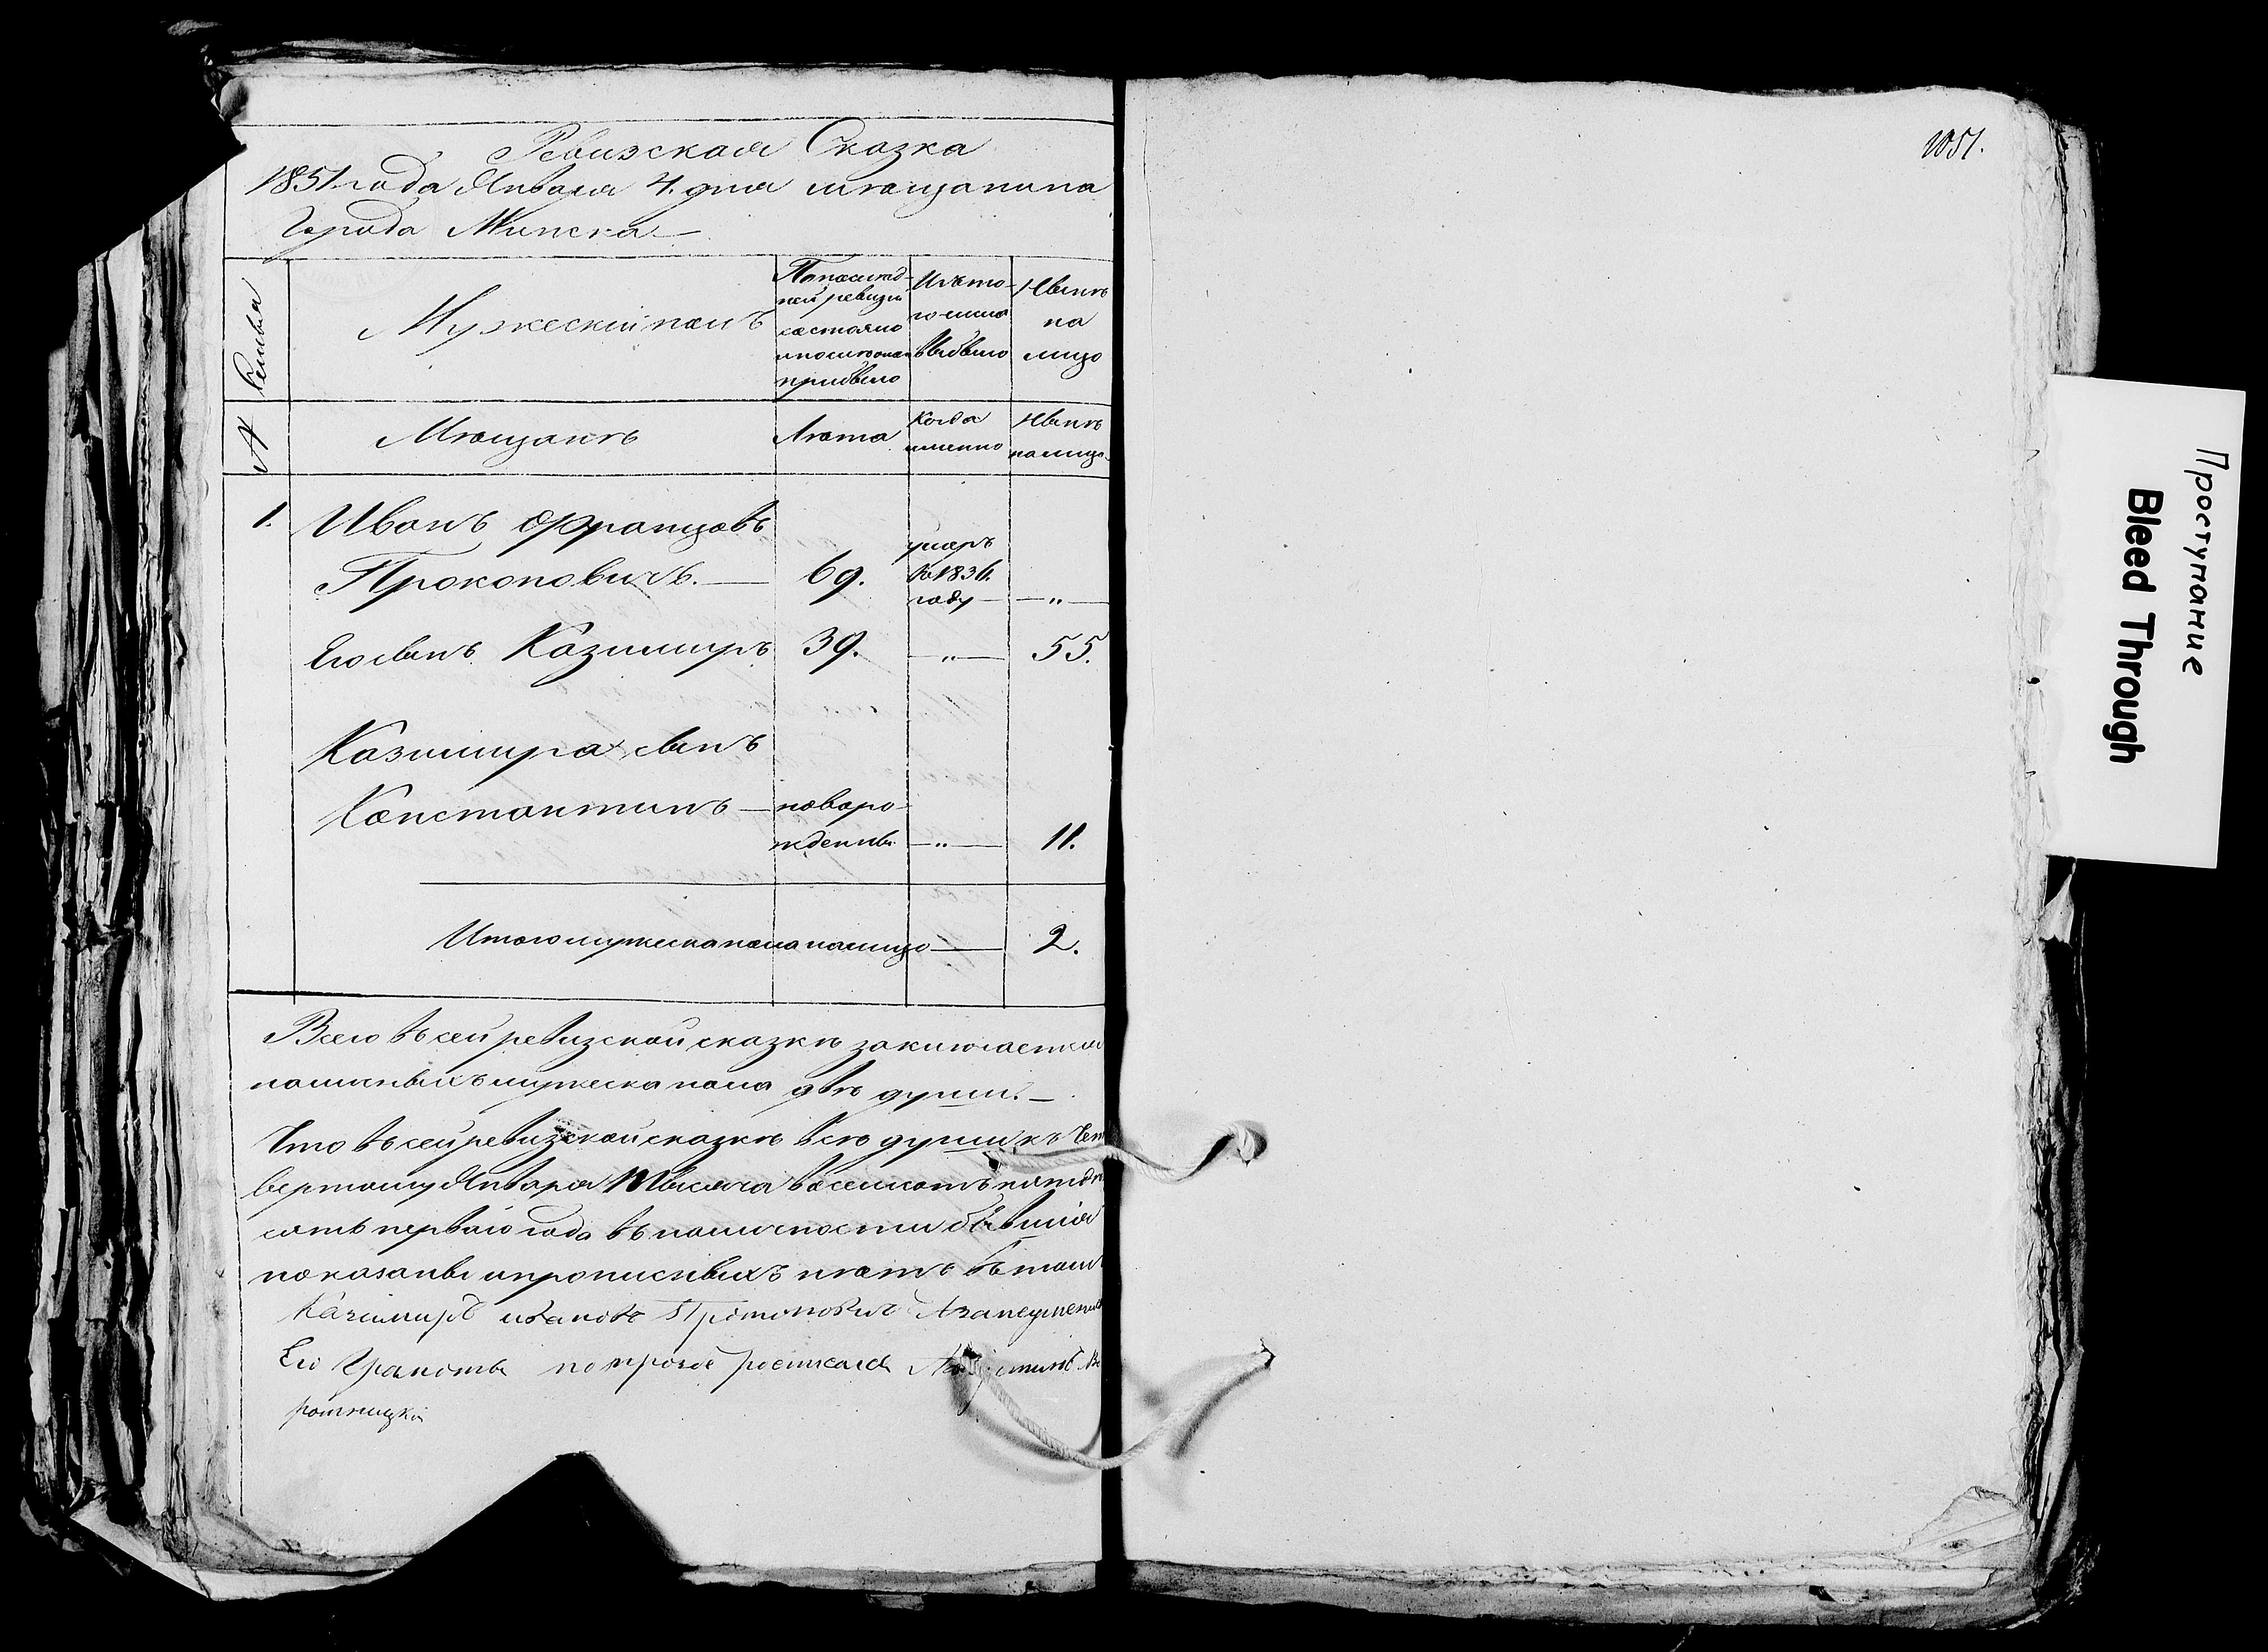 Ревизская Сказка
1851 года Января 4. дня мѣщанина
города Минска
Семьи
Мужескій полъ
По послѣд-
ней ревизіи
состояло
и после оной
прибыло
Изъ то-
го числа
выбыло
Нынѣ
на
лицо
№
Мѣщанѣ
Лѣта
Когда
именно
Нынѣ
налицо
1. Иванъ Францовъ
Прокоповичъ. — 69.
умеръ
въ 1836.
году — — „ —
Его сынъ Казимиръ 39. — „ — 55.
Казимира сынъ
Константинъ — новоро-
жденны. — „ — 11.
Итого мужеска пола налицо — 2.
Всего въ сей ревизской сказкѣ заключается
наличныхъ мужеска пола двѣ души. —
Что въ сей ревизской сказкѣ всѣ души къ Чет
вертому Января Тысяча восемсотъ пятдѣ
сятъ перваго года въ наличности бывшія
показаны и прописныхъ нѣтъ въ томъ
Казимиръ Ивановъ Прокоповичъ А за неуменіем
Его Грамоты по прозбѣ росписался
1051.
Проступание
Bleed Through